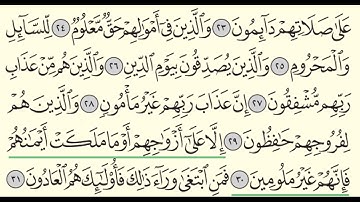 عَلَىٰ صَلَاتِهِمْ دَآئِمُونَ ٢٣ وَٱلَّذِينَ فِىٓ أَمْوَٰلِهِمْ حَقٌّ مَّعْلُومٌ ٢٤ لِّلسَّآئِلِ
وَٱلْمَحْرُومِ ٢٥ وَٱلَّذِينَ يُصَدِّقُونَ بِيَوْمِ ٱلدِّينِ ٢٦ وَٱلَّذِينَ هُم مِّنْ عَذَابِ
رَبِّهِم مُّشْفِقُونَ ٢٧ إِنَّ عَذَابَ رَبِّهِمْ غَيْرُ مَأْمُونٍ ٢٨ وَٱلَّذِينَ هُمْ
لِفُرُوجِهِمْ حَٰفِظُونَ ٢٩ إِلَّا عَلَىٰٓ أَزْوَٰجِهِمْ أَوْ مَا مَلَكَتْ أَيْمَٰنُهُمْ
فَإِنَّهُمْ غَيْرُ مَلُومِينَ ٣٠ فَمَنِ ٱبْتَغَىٰ وَرَآءَ ذَٰلِكَ فَأُو۟لَٰٓئِكَ هُمُ ٱلْعَادُونَ ٣١